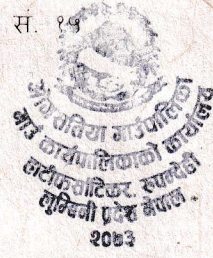 सं. १५
ओमसतिया गाउँपालिका
गाउँ कार्यपालिकाको कार्यालय
हाटीफर्साटिकर, रुपन्देही
लुम्बिनी प्रदेश नेपाल
२०७३